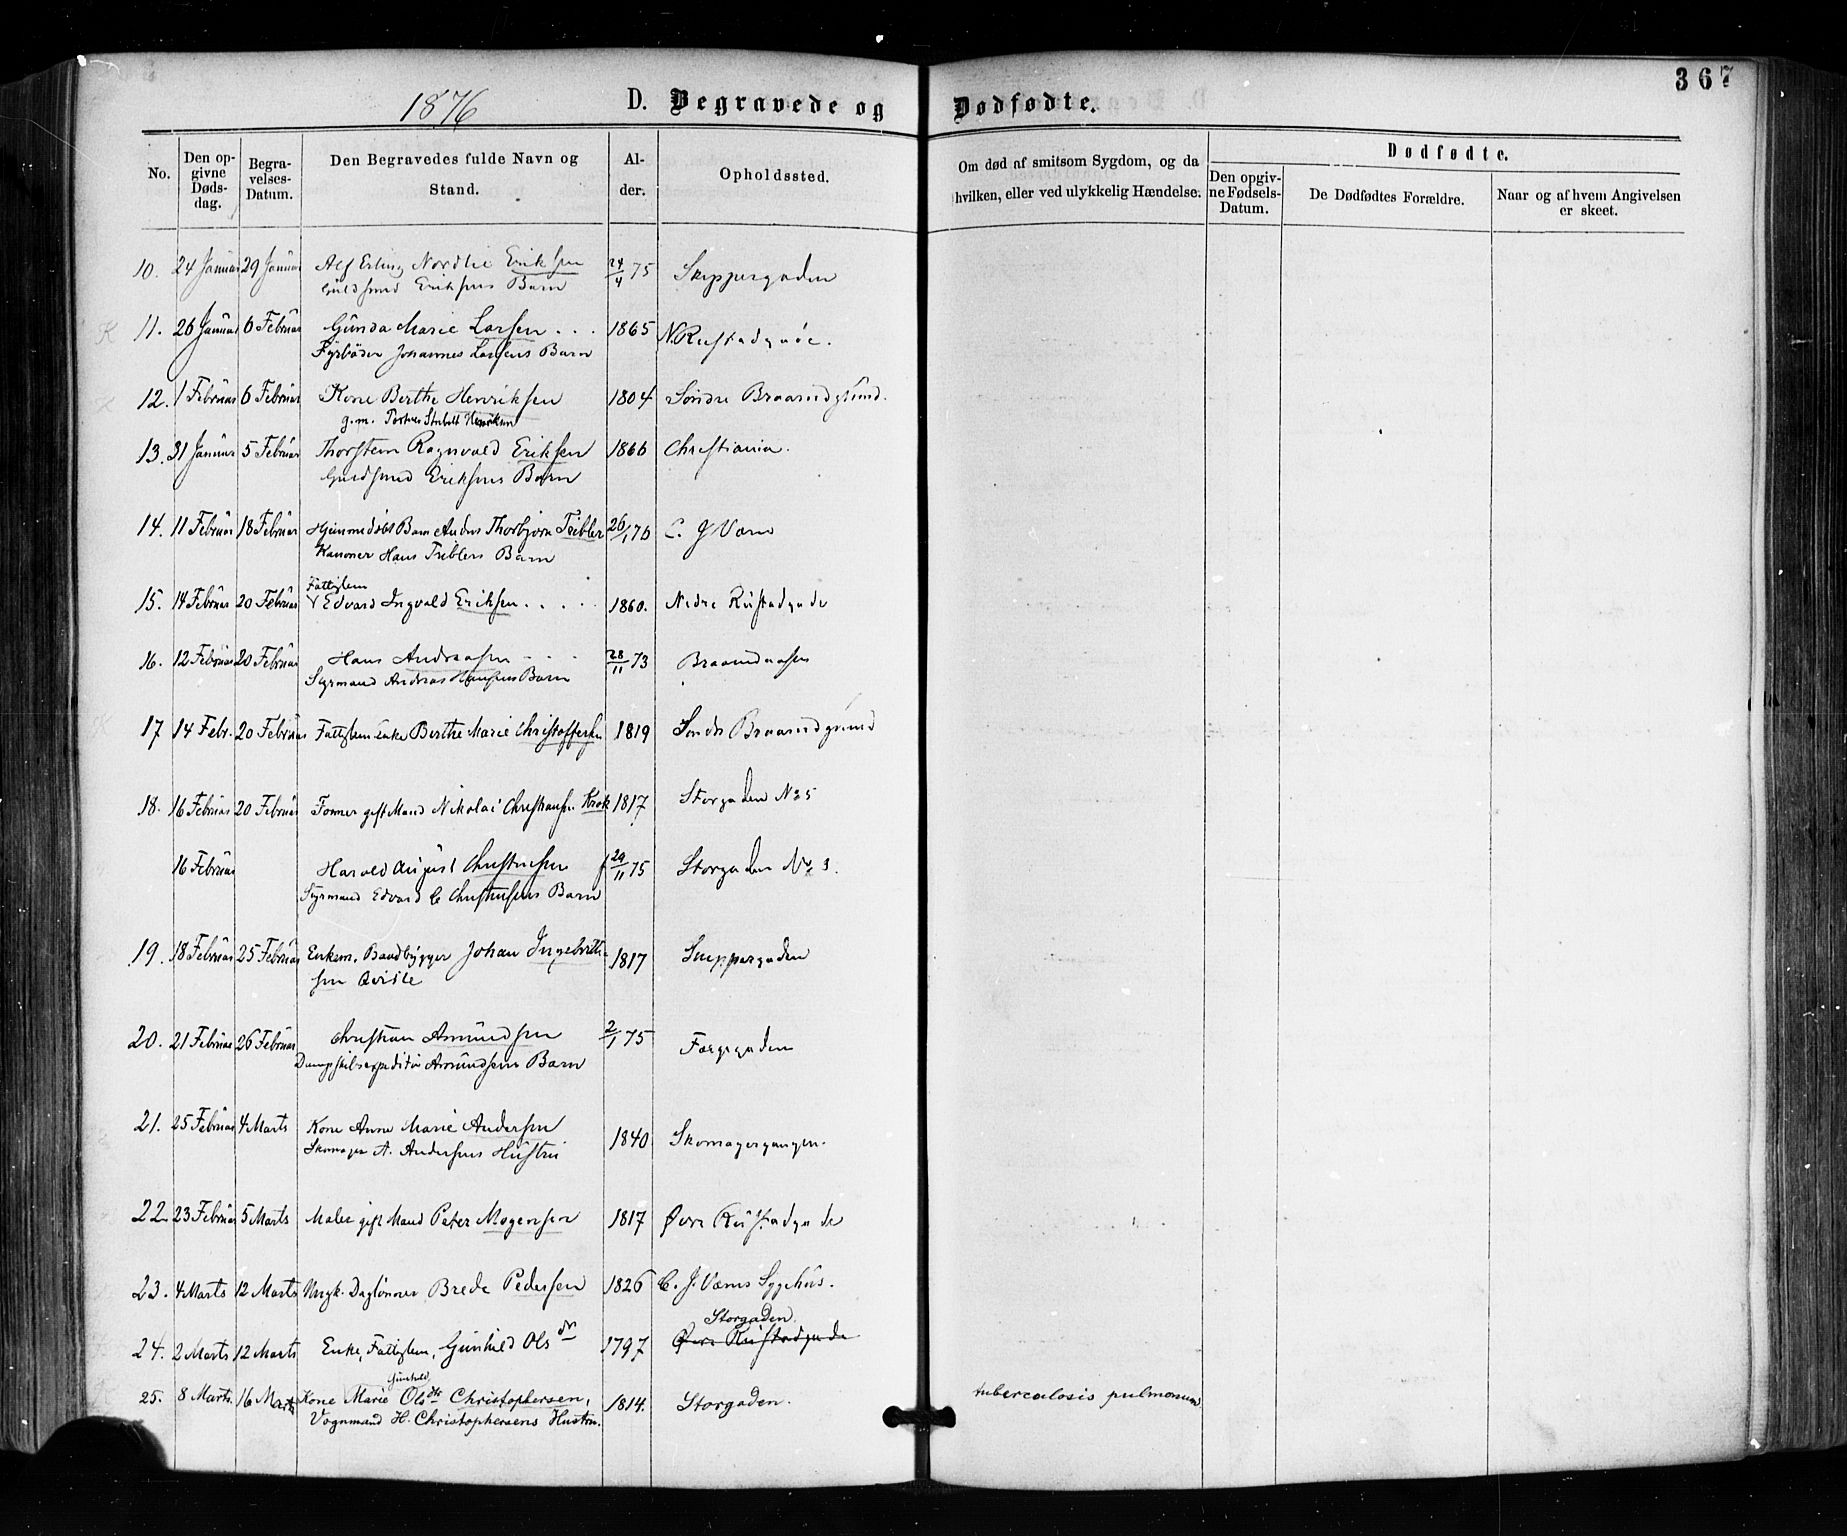 367
1876 D. Begravede og Dødfødte.
No.
Den opgivne Dødsdag.
Begravelses-Datum.
Den Begravedes fulde Navn og Stand.
Alder.
Opholdssted.
Om død af smitsom Sygdom, og da hvilken, eller ved ulykkelig Hændelse.
Dødfødte.
Den opgivne Fødsels-Datum.
De Dødfødtes Forældre.
Naar og af hvem Angivelsen er skeet.
10. 24 Januar 29 Januar Alf Erling Nordlie Eriksen 24/4 75 Skippergaden
Guldsmed Eriksens Barn
11. 26 Januar 6 Februar Gunda Marie Larsen . . . 1865 N. Rustadgade.
Fyrbøder Johannes Larsens Barn
12. 1 Februar 6 Februar Kone Berthe Henriksen 1804 Søndre Braarudgrund.
g. m. Henriksen
13. 31 Januar 5 Februar Thorstein Ragnvald Eriksen 1866 Christiania.
Guldsmed Eriksens Barn
14. 11 Februar 18 Februar Hjemmedøbt Barn Anders Thorbjørn Tribler 26/1 76 C. J Værn
Kanoner Hans Triblers Barn
Fattiglem
15. 14 Februar 20 Februar Edvard Ingvald Eriksen . . . . . 1860. Nedre Rustadgade
16. 12 Februar 20 Februar Hans Andreasen 28/11 73
Styrmand Andreas Hansens Barn
17 14 Febr. 20 Februar Fattiglem Enke Berthe Marie Christoffersen 1819 Søndre Braarudgrund
18. 16 Februar 20 Februar gift Mand Nikolai Christiansen Krok 1817 Storgaden N 25
16 Februar Harald August Christensen 29/11 75 Storgaden No 3.
Styrmand Edvard C Christensens Barn
19. 18 Februar 25 Februar Enkem. Baadbygger Johan Ingebrettsen Qvisle 1817 Skippergaden
20. 21 Februar 26 Februar Christian Amundsen 2/1 75 Færgegaden
Dampskibsexpeditør Amundsens Barn
21. 25 Februar 4 Marts Kone Anne Marie Andersen 1840 Skomagergangen.
Skomager A. Andersens Hustru
22. 23 Februar 5 Marts Maler gift Mand Peter Mogensen 1817 Øvre Rustadgade
23. 4 Marts 12 Marts Ungk. Daglønner Brede Pedersen 1826 C. J. Værns Sygehus.
Storgaden.
24. 2 Marts 12 Marts Enke, Fattiglem, Gunhild Olsdr 1797 Øvre Rustadgade
Gunhild
25. 8 Marts. 16 Marts Kone Marie Olsdtr Christophersen, 1814. Storgaden. tuberculosis pulmonum
Vognmand H. Christophersens Hustru.